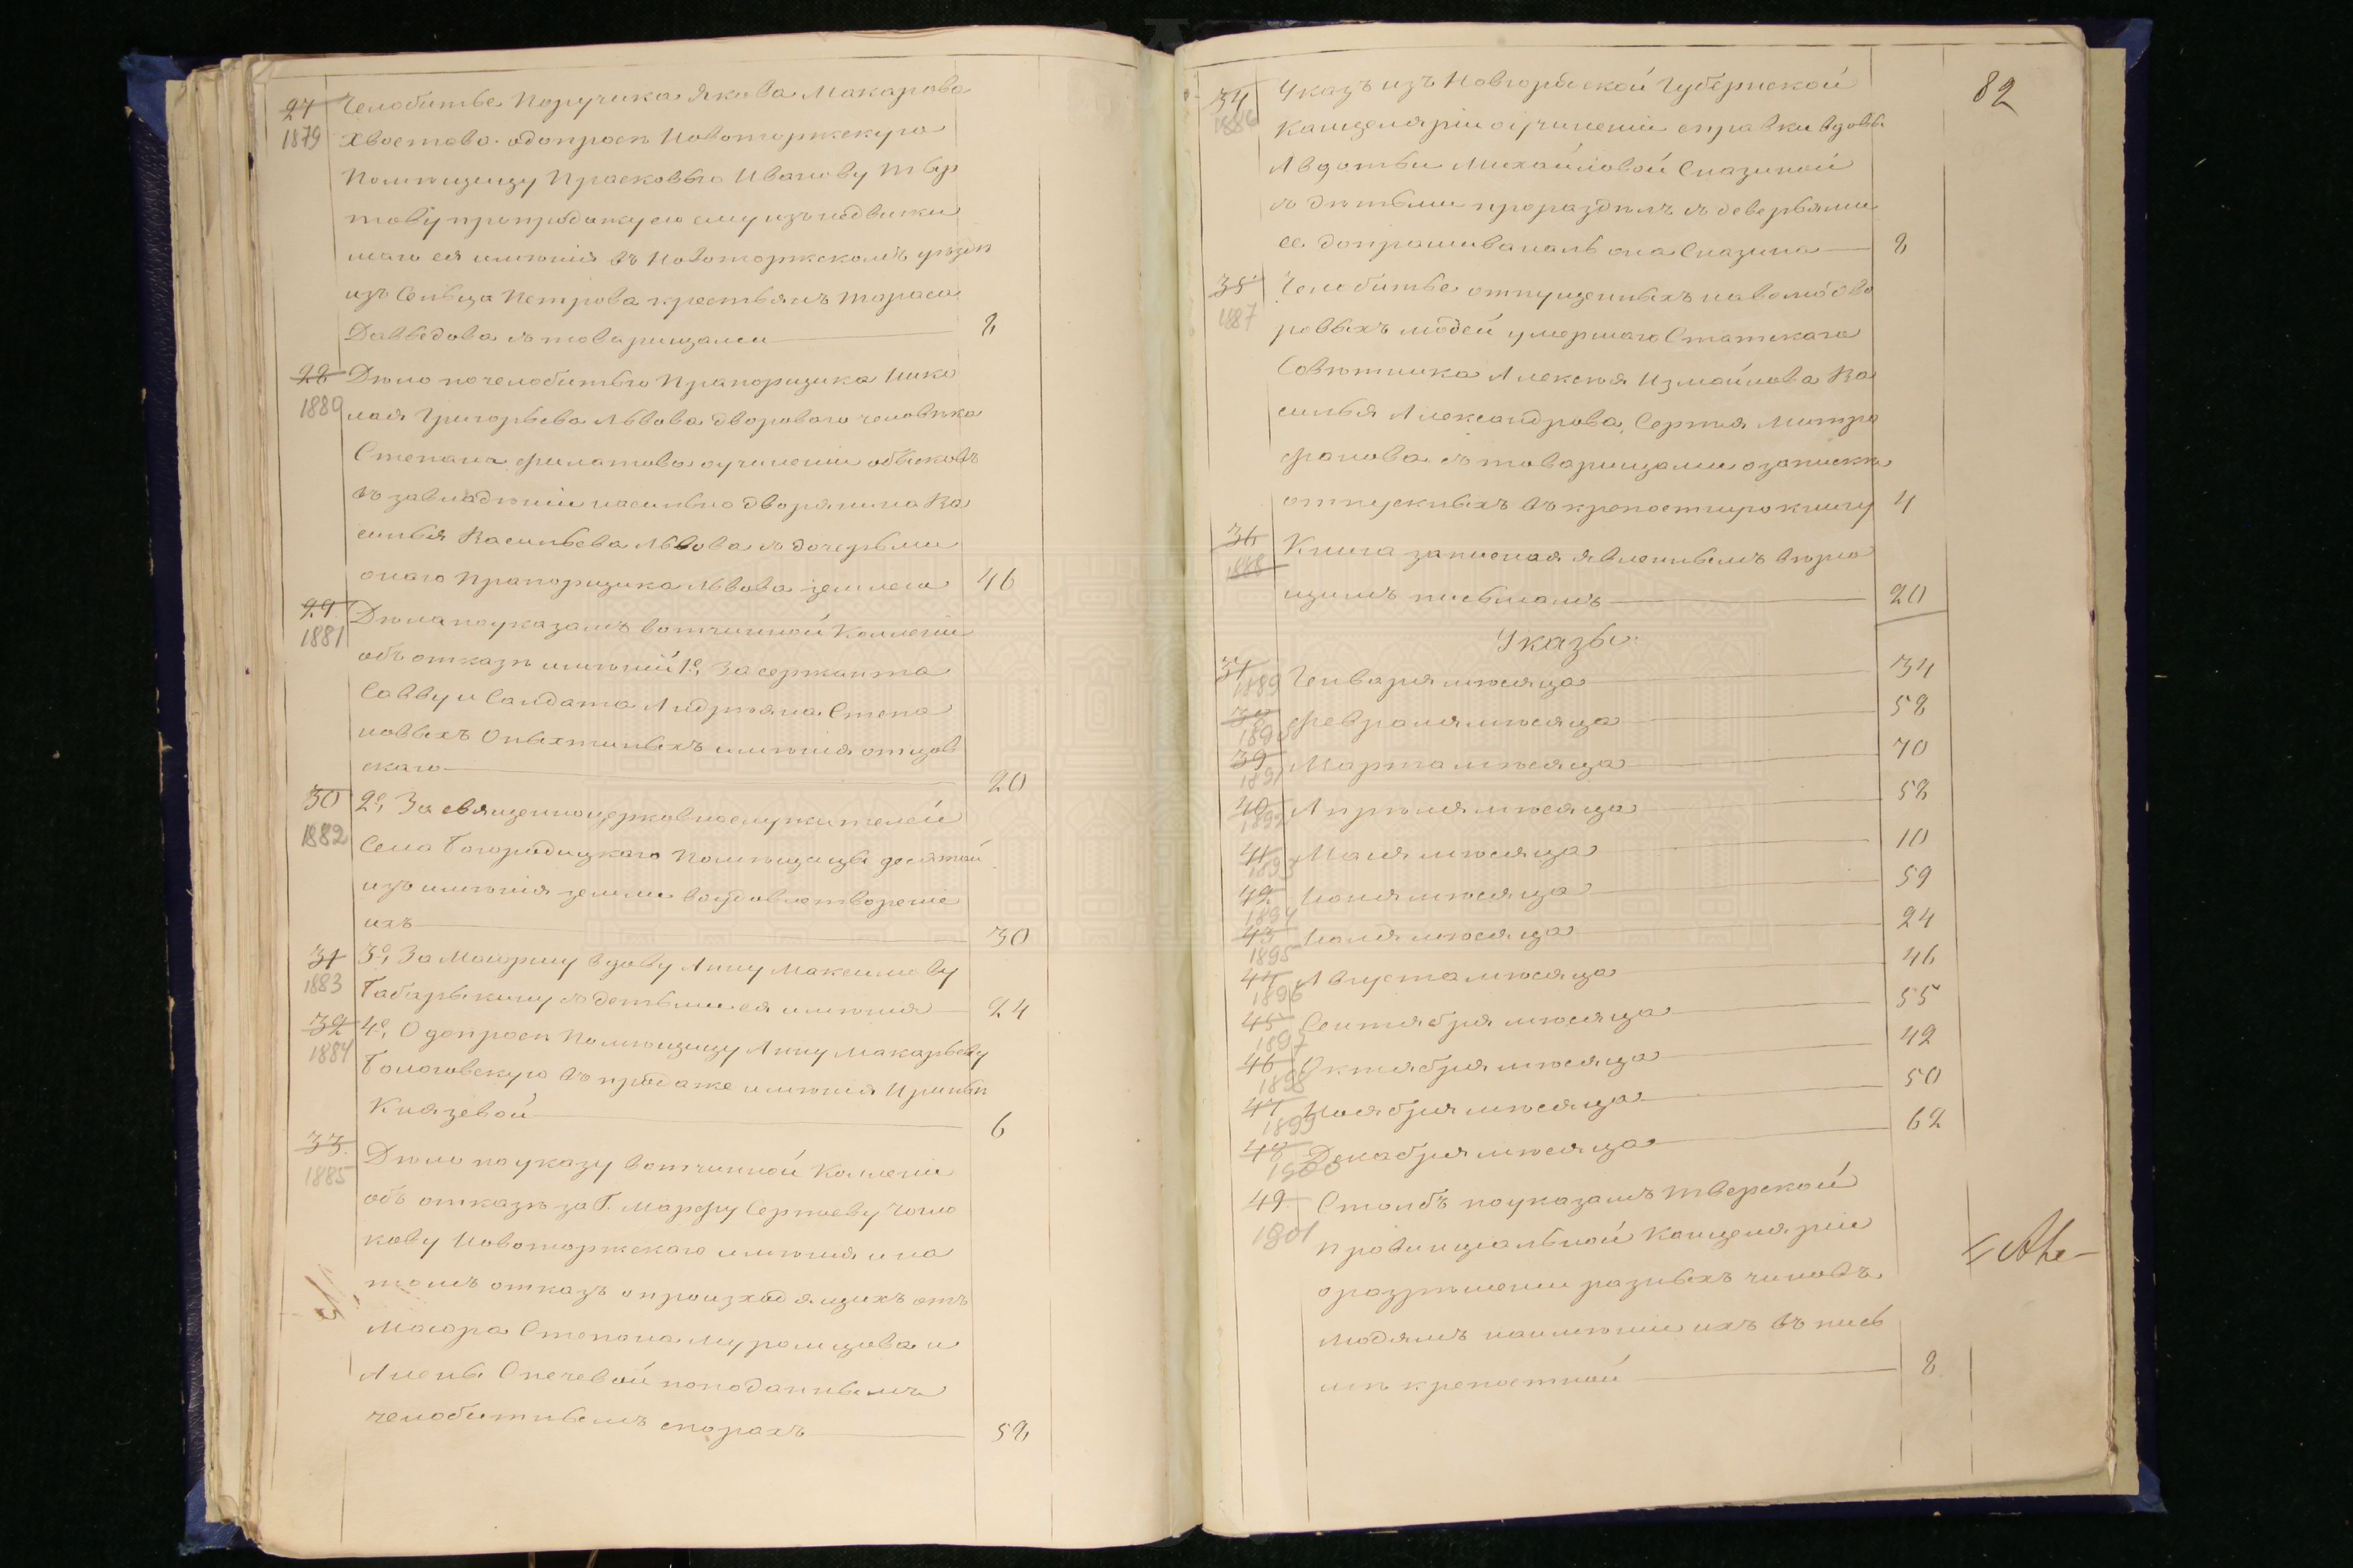 27 Челобитье Поручика Якова Макарова
1879 Хвостова о допросе Новоторжскую
Помѣщицу Прасковью Иванову
тову про продажу ею ему изъ недвижи
маго ея имѣнія въ Новоторжскомъ уѣздѣ
изъ Сельца Петрова крестьянъ Тараса
Давыдова съ товарищами 8
28 Дѣло по челобитью Прапорщика Нико
1880 лая Григорьева Львова дворового человѣка
Степана Филатова о учиненіи обысковъ
въ завладѣніи насильно дворянина Ва
силья Васильева Львова съ дочерьми
онаго Прапорщика Львова землею 46
29 Дѣла по указамъ вотчинной Коллегіи
1881 объ отказѣ имѣній 1е, За сержанта
Савву и Салдата Андреяна Степа
новыхъ Опыхтиныхъ имѣнія отцов
скаго 20
30 2е, За священноцерковнослужителей
1882 Села Богородицкаго Помѣщицы десятой
изъ имѣнія земли въ удовлетвореніе
ихъ 30
31 3е, За Маіоршу вдову Анну Максимову
1883 Бабарыкину съ детьми ея имѣнія 24
32 4е, О допросѣ Помѣщицу Анну Макарьеву
1884 Бологовскую въ продаже имѣнія Ириньѣ
Князевой 6
33. Дѣло по указу вотчинной Коллегіи
1885 объ отказѣ за Г. Марфу Сергѣеву Чогло
кову Новоторжскаго имѣнія и на
томъ отказѣ о произходящихъ отъ
Маіора Степана Муромцова и
Алены Спечевой по поданнымъ
челобитнымъ спорахъ 58
82
34 Указъ изъ Новгородской Губернской
1886 Канцеляріи о учиненіи справки вдовы
Авдотьи Михайловой Спазиной
съ дѣтьми про раздѣлъ съ деверьями
ее допрашивана ль она Спазина 8
35 Челобитье отпущенныхъ на волю дво
1887 ровыхъ людей умершаго Статскаго
Совѣтника Алексѣя Измайлова Ва
силья Александрова, Сергѣя Митро
фанова съ товарищами о запискѣ
отпускныхъ въ крепостную книгу 4
36 Книга записная явленнымъ вѣрю
1888 щимъ письмамъ 20
Указы:
37 1889 Генваря мѣсяца 34
38 1890 Февраля мѣсяца 58
39 1891 Марта мѣсяца 70
40 1892 Апрѣля мѣсяца 58
41 1893 Маія мѣсяца 10
42 Іюня мѣсяца 59
1894
43 Іюля мѣсяца 24
1895
44 Августа мѣсяца 46
1896
45 Сентября мѣсяца 55
1897
46 Октября мѣсяца 42
1898
47 Ноября мѣсяца 50
1899
48 Декабря мѣсяца 62
1900
49 Столбъ по указамъ Тверской
1901 провинціальной Канцеляріи
о разрѣшеніи разныхъ чиновъ
людямъ на имѣніи ихъ въ пись
мѣ крепостной 8